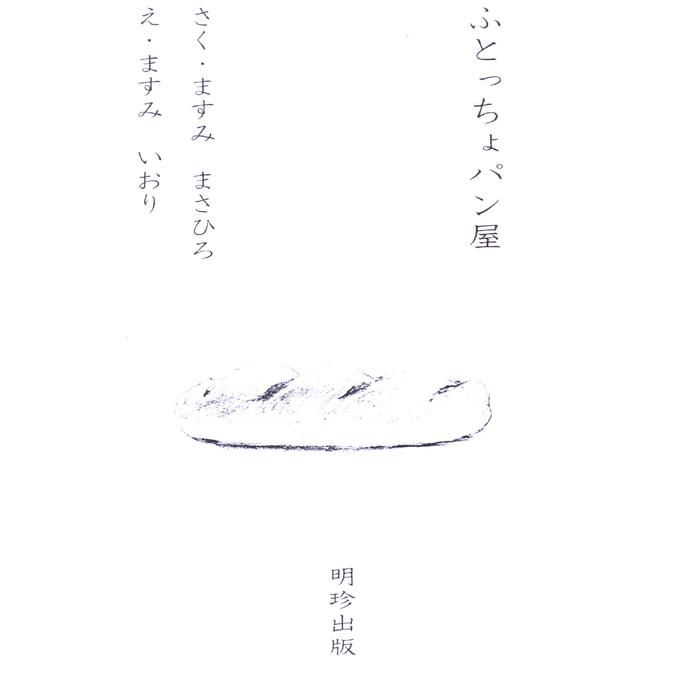 ふとっちょパン屋
さく・ますみ　まさひろ
え・ますみ　いおり
明珍出版